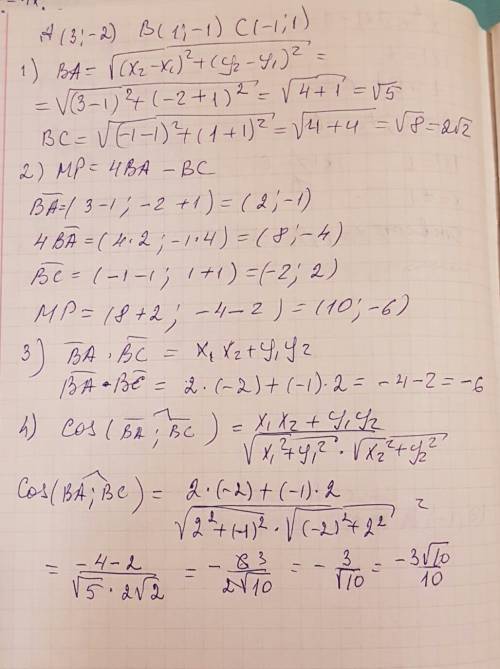 A(3;-2) B(1;-1) C(-1;1)
1) BA = √((x₂-x₁)²+(y₂-y₁)²) =
= √((3-1)²+(-2+1)²) = √(4+1) = √5
BC = √((-1-1)²+(1+1)²) = √(4+4) = √8 = 2√2
2) MP = 4BA - BC
BA = (3-1; -2+1) = (2;-1)
4BA = (4·2; -1·4) = (8;-4)
BC = (-1-1; 1+1) = (-2;2)
MP = (8+2; -4-2) = (10;-6)
3) BA · BC = x₁x₂+y₁y₂
BA · BC = 2·(-2)+(-1)·2 = -4-2 = -6
4) cos(BA;BC) = (x₁x₂+y₁y₂)/(√(x₁²+y₁²)·√(x₂²+y₂²))
Cos(BA;BC) = (2·(-2)+(-1)·2)/(√(2²+(-1)²)·√((-2)²+2²)) =
= (-4-2)/(√5·2√2) = -3/(2√10) = -3/√10 = -3√10/10